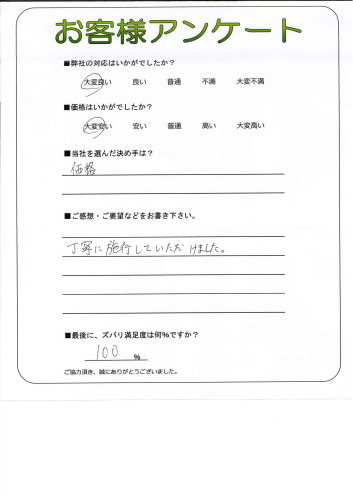 お客様アンケート
■弊社の対応はいかがでしたか？
大変良い 良い 普通 不満 大変不満
■価格はいかがでしたか？
大変安い 安い 普通 高い 大変高い
■当社を選んだ決め手は？
価格
■ご感想・ご要望などをお書き下さい。
丁寧に施行していただけました。
■最後に、ズバリ満足度は何%ですか？
100 %
ご協力頂き、誠にありがとうございました。